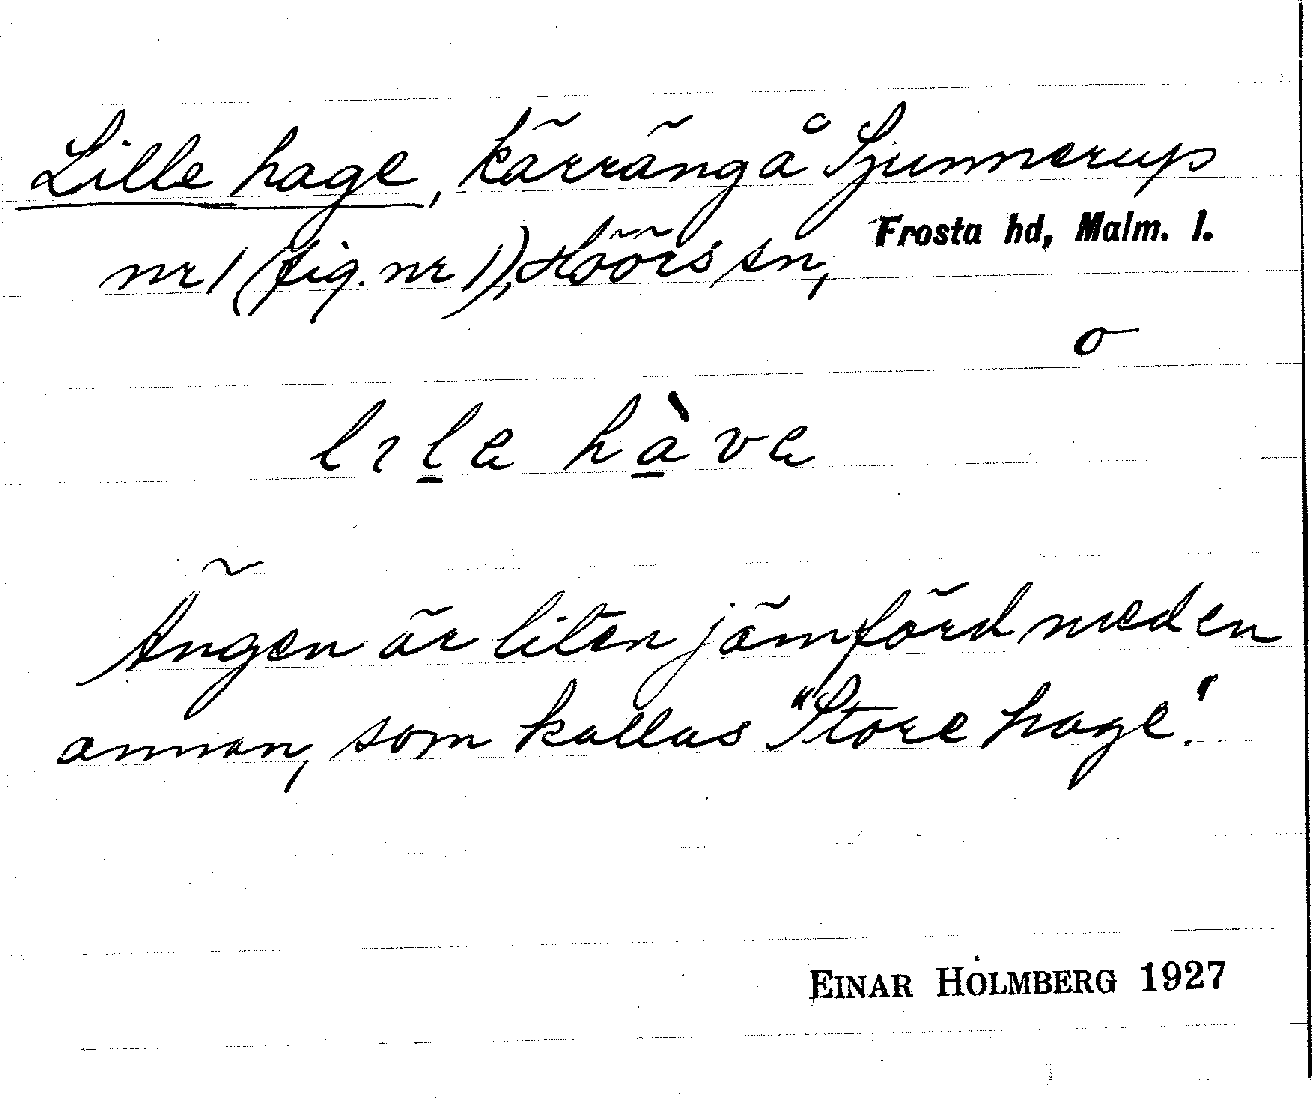 Lille hage, kärräng å Sjunnerup
nr 1 (fig. nr 1), Höörs sn, Frosta hd, Malm. l.
o
lıl̲e hà̲ve
Ängen är liten jämförd med en
annan, som kallas "Store hage".
EINAR HOLMBERG 1927